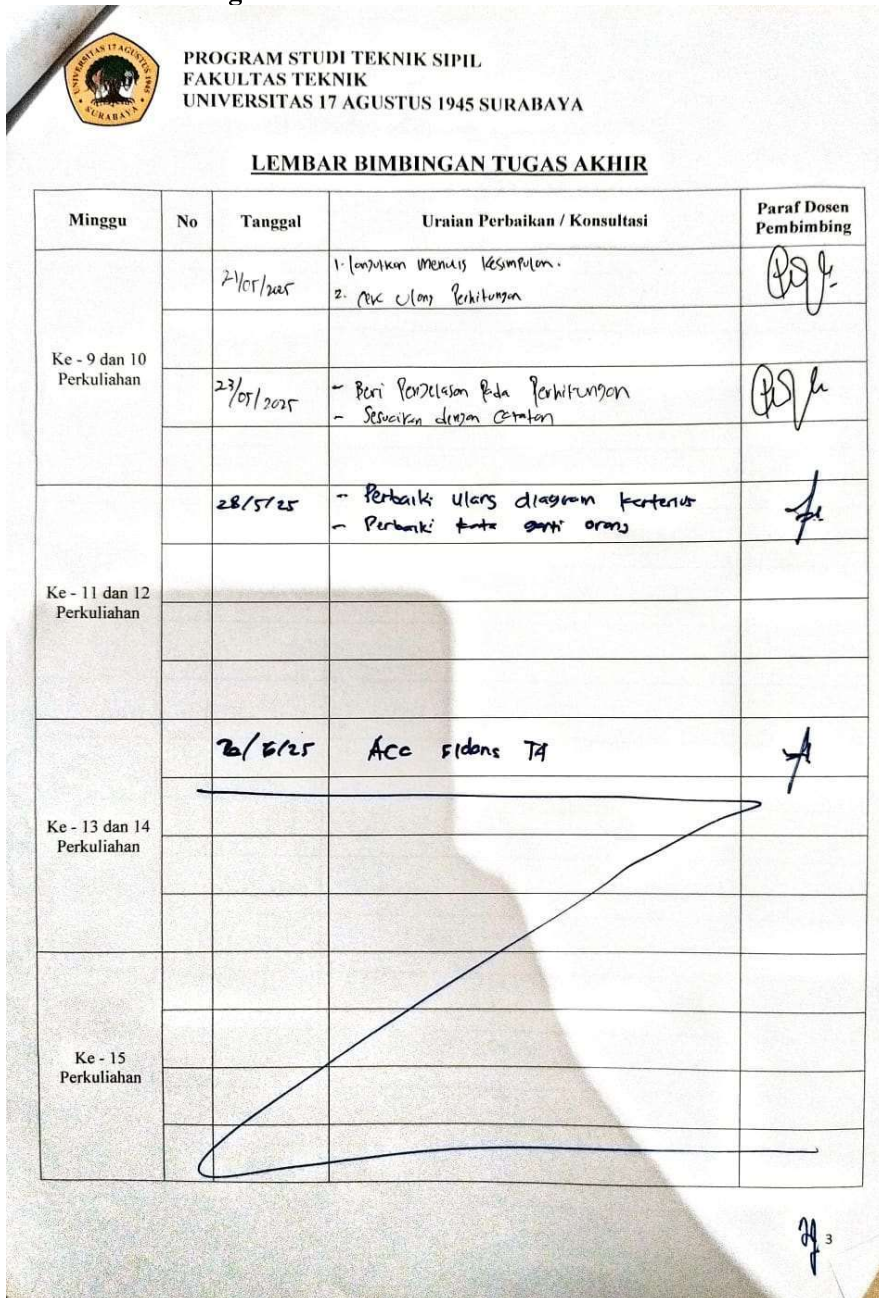 g
UNIVERSITAS 17 AGUSTUS 1945
SURABAYA
PROGRAM STUDI TEKNIK SIPIL
FAKULTAS TEKNIK
UNIVERSITAS 17 AGUSTUS 1945 SURABAYA
LEMBAR BIMBINGAN TUGAS AKHIR
Minggu No Tanggal Uraian Perbaikan / Konsultasi Paraf Dosen Pembimbing
Ke - 9 dan 10 Perkuliahan
21/05/2025 1. lanjutkan menulis Kesimpulan.
2. Cek Ulang Perhitungan
23/05/2025 - Beri Penjelasan Pada Perhitungan
- Sesuaikan dengan Catatan
Ke - 11 dan 12 Perkuliahan
28/5/25 - Perbaiki ulang diagram
- Perbaiki kata ganti orang
Ke - 13 dan 14 Perkuliahan
Acc sidang TA
Ke - 15 Perkuliahan
3